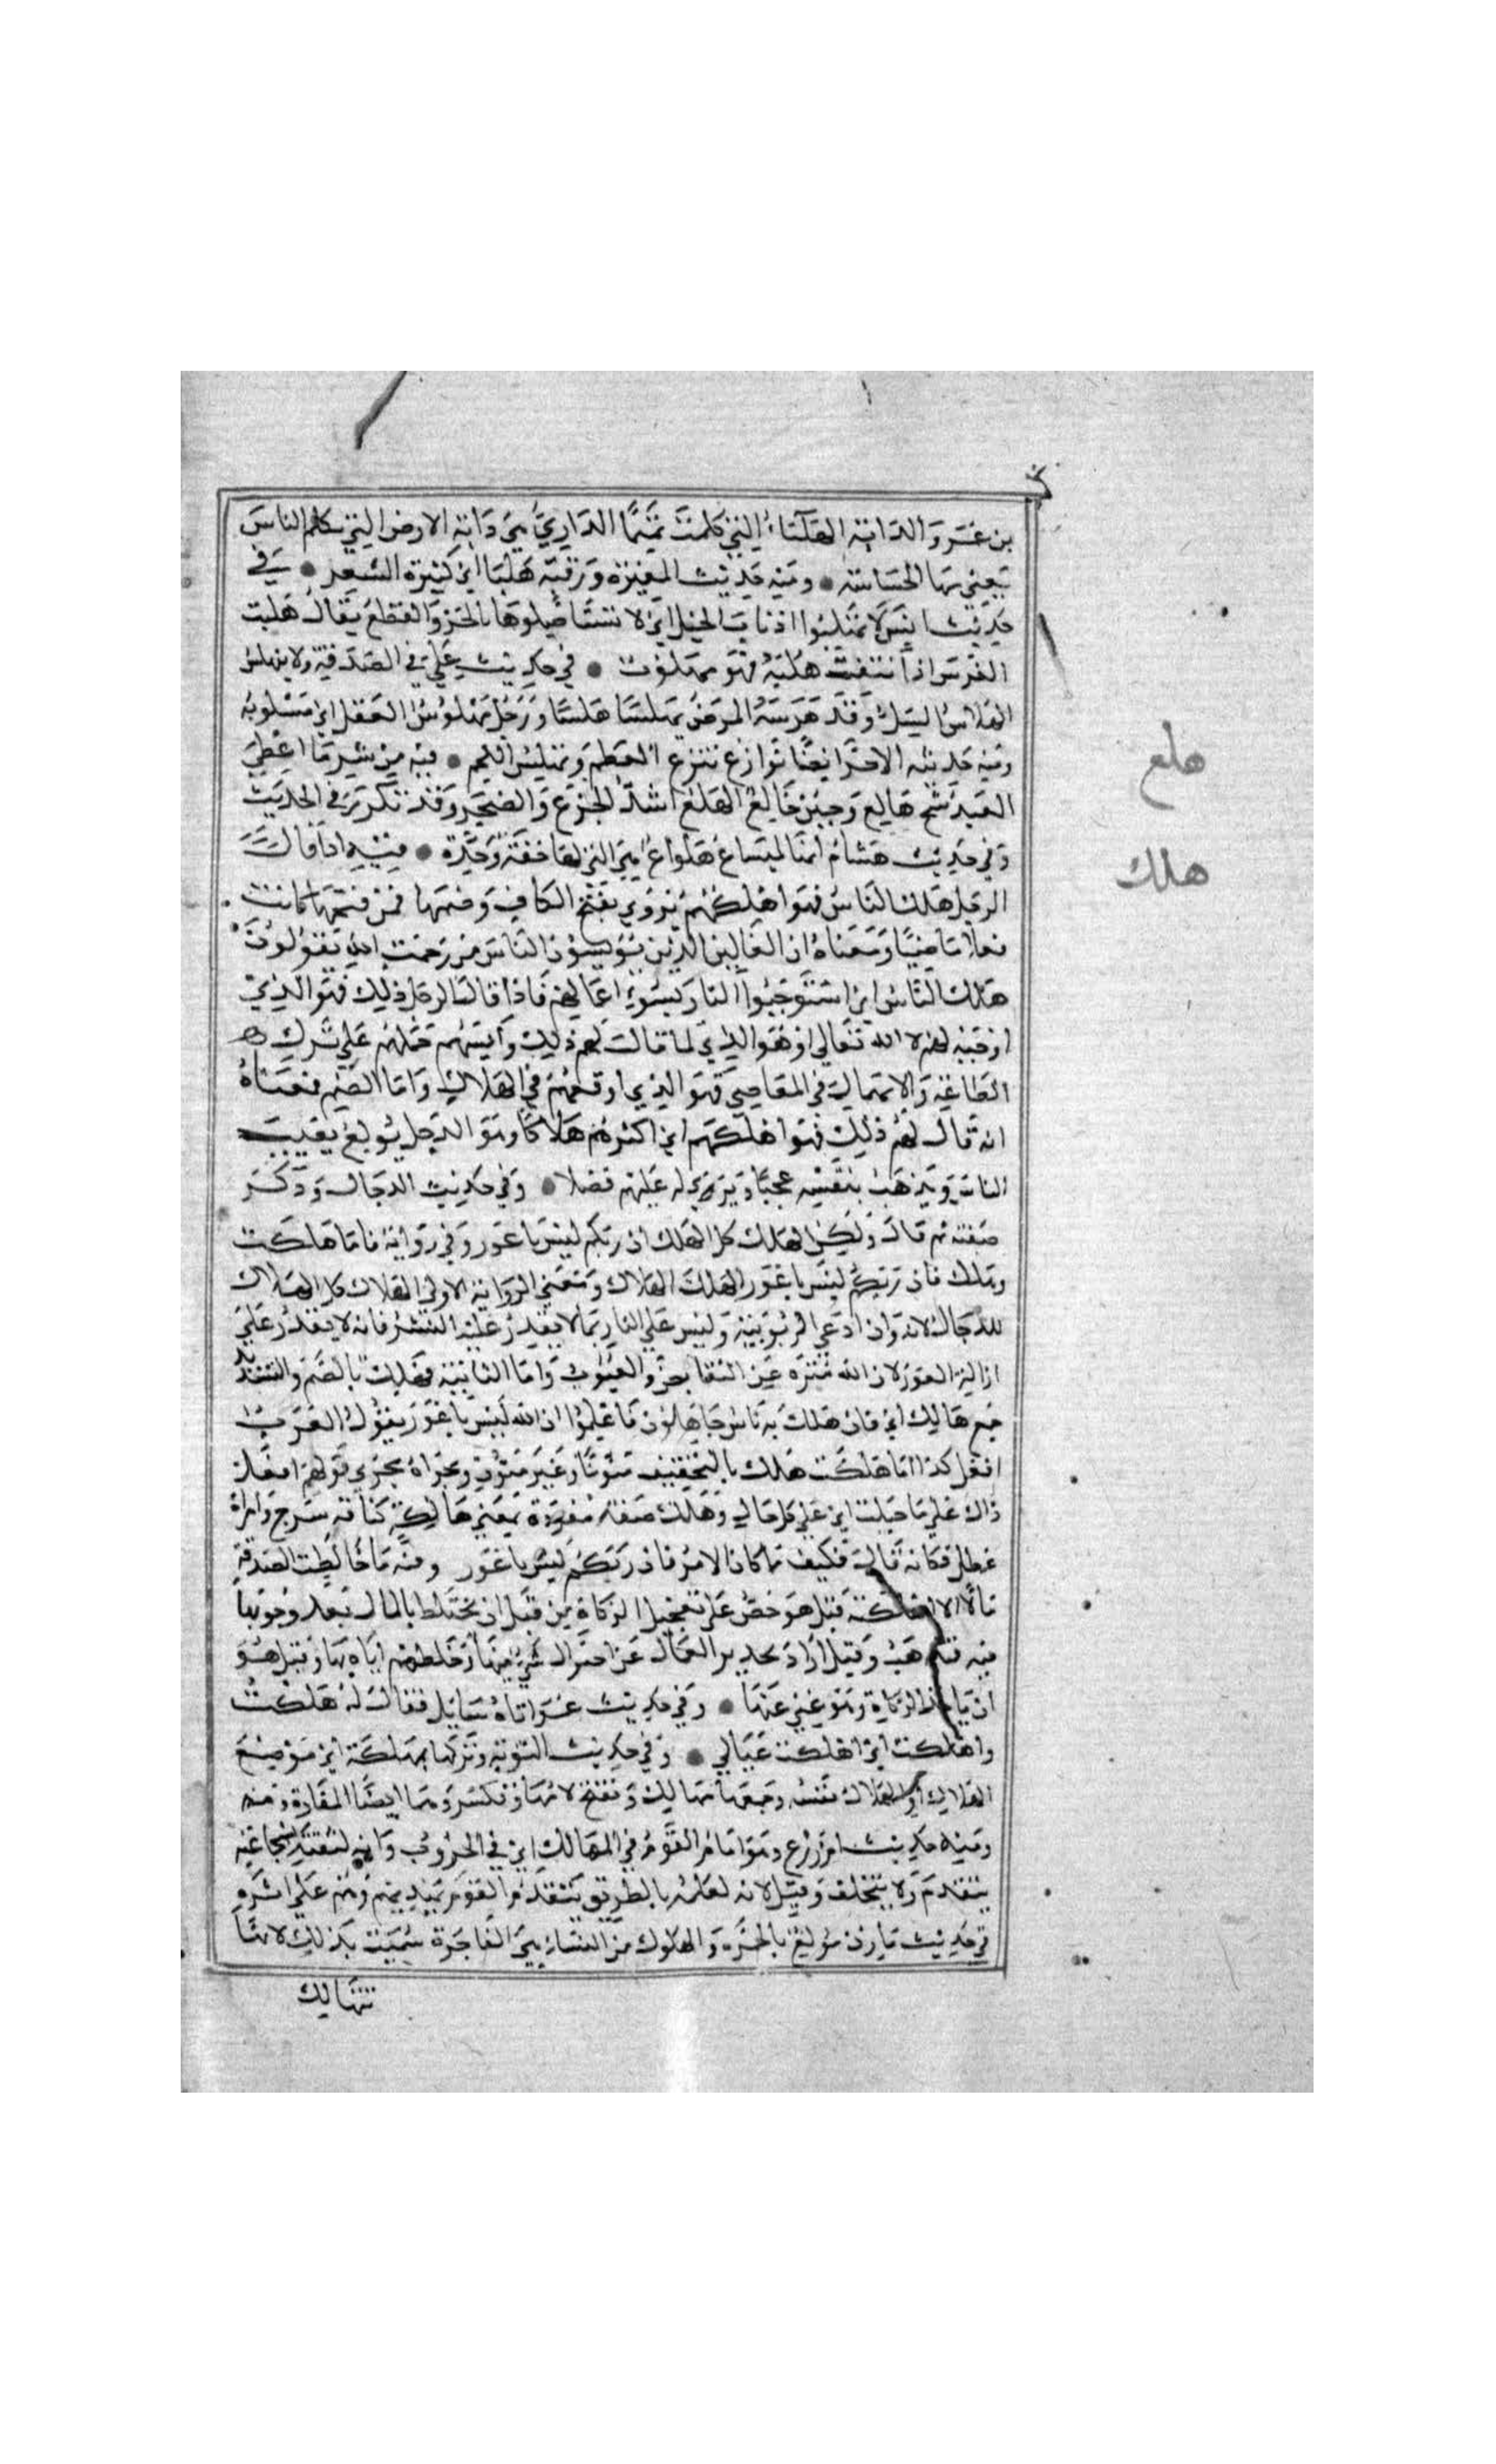 بن عمر والدابة الهلباء التي كلمت تميما الداري هي دابة الارض التي تكلم الناس
يعني بها الجساسة ومنه حديث المغيرة ورقبة هلبا اي كثيرة الشعر في
حديث انس لا تهلبوا اذناب الخيل اي لا تستاصلوها بالجز والقطع يقال هلبت
الفرس اذا نتفت هلبه فهو مهلوب في حديث علي في الصدقة ولا ينهلس
الهلاس السل وقد هلسه المرض يهلسه هلسا ورجل مهلوس العقل اي مسلوبه
ومنه حديثه الاخر ايضا نوازع تنزع العظم وتهلس اللحم فيه من شر ما اعطي
العبد شح هالع وجبن خالع الهلع اشد الجزع والضجر وقد تكرر في الحديث
وفي حديث هشام انها لمسياع هلواع هي التي لها خفة وحدة فيه اذا قال
الرجل هلك الناس فهو اهلكهم يروي بفتح الكاف وضمها فمن فتحها كانت
فعلا ماضيا ومعناه ان الغالين الذين يؤيسون الناس من رحمت الله يقولون
هلك الناس اي استوجبوا النار بسوء اعمالهم فاذا قال الرجل ذلك فهو الذي
اوجبه لهم لا الله تعالي او هو الذي لما قال لهم ذلك وآيسهم حملهم علي ترك
الطاعة والانهماك في المعاصي فهو الذي اوقعهم في الهلاك واما الضم فمعناه
انه قال لهم ذلك فهو اهلكهم اي اكثرهم هلاكا وهو الرجل يولع بعيب
الناس ويذهب بنفسه عجبا ويري له عليهم فضلا وفي حديث الدجال وذكر
صفته ثم قال ولكن الهلك كل الهلك ان ربكم ليس باعور وفي رواية فاما هلكت
وهلك فان ربكم ليس باعور الهلك الهلاك ومعني الرواية الاولي الهلاك كل الهلاك
للدجال لانه وان ادعي الربوبية ولبس علي الناس بما لا يقدر عليه البشر فانه لا يقدر علي
ازالة العور لان الله منزه عن النقائص والعيوب واما الثانية فهلك بالضم والتشديد
جمع هالك اي فان هلك به ناس جاهلون فاعلموا ان الله ليس باعور يقول العرب
افعل كذا اما هلكت هلك بالتخفيف منونا وغير منون ومجراه مجري قولهم افعل
ذاك علي ما خيلت اي علي كل حال وهلك صفة مفردة بمعني هالكة كناقة سرح وامراة
عطل فكانه قال فكيف ما كان الامر فان ربكم ليس باعور ومنه ما خالطت الصدقة
مالا الا اهلكته قيل هو حض علي تعجيل الزكاة من قبل ان يختلط بالمال بعد وجوبها
فيه فتذهب وقيل اراد تحذير العمال عن اختزال شيء منها وخلطهم اياه بها وقيل هو
ان ياخذ الزكاة وهو غني عنها وفي حديث عمر اتاه سايل فقال له هلكت
واهلكت اي اهلكت عيالي وفي حديث التوبة وتركها بمهلكة اي موضع
الهلاك او الهلاك نفسه وجمعها مهالك وتفتح لامها وتكسر وهما ايضا المفازة
ومنه حديث ام زرع وهو امام القوم في المهالك اي في الحروب وانه لثقته بشجاعته
يتقدم ولا يتخلف وقيل لانه لعلمه بالطريق يتقدم القوم يهديهم وهم علي اثره
في حديث مازن مولع بالخمر والهلوك من النساء هي الفاجرة سميت بذلك لانها
تتهالك
هلع
هلك